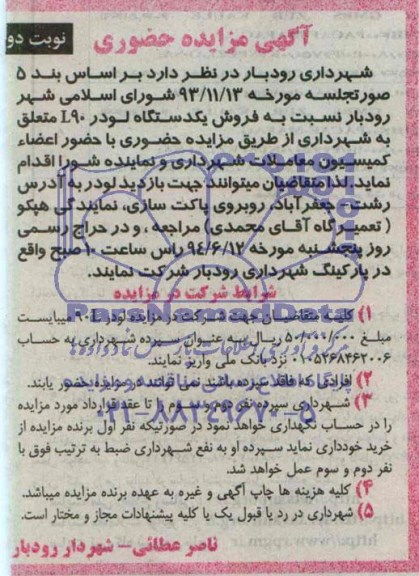 آگهی مزایده حضوری
نوبت دو
شهرداری رودبار در نظر دارد بر اساس بند ۵
صورتجلسه مورخه ۹۳/۱۱/۱۳ شورای اسلامی شهر
رودبار نسبت به فروش یکدستگاه لودر L۹۰ متعلق
به شهرداری از طریق مزایده حضوری با حضور اعضاء
کمیسیون معاملات شهرداری و نماینده شورا اقدام
نماید. لذا متقاضیان میتوانند جهت بازدید لودر به آدرس
رشت - جعفرآباد، روبروی پاکت سازی، نمایندگی هپکو
( تعمیرگاه آقای محمدی) مراجعه، و در حراج رسمی
روز پنجشنبه مورخه ۹۴/۶/۱۲ راس ساعت ۱۰ صبح واقع
در پارکینگ شهرداری رودبار شرکت نمایند.
شرایط شرکت در مزایده
۱) کلیه متقاضیان جهت شرکت در مزایده لودر L۹۰ میبایست
مبلغ ۵۰/۰۰۰/۰۰۰ ریال به عنوان سپرده شهرداری به حساب
۰۱۰۵۴۶۸۴۶۲۰۰۶ نزد بانک ملی واریز نمایند.
۲) افرادی که فاقد سپرده باشند نمی توانند در مزایده حضور یابند.
۳) شهرداری سپرده نفر دوم و سوم را تا عقد قرارداد مورد مزایده
را در حساب نگهداری خواهد نمود در صورتیکه نفر اول برنده مزایده از
خرید خودداری نماید سپرده او به نفع شهرداری ضبط به ترتیب فوق با
نفر دوم و سوم عمل خواهد شد.
۴) کلیه هزینه ها چاپ آگهی و غیره به عهده برنده مزایده میباشد.
۵) شهرداری در رد یا قبول یک یا کلیه پیشنهادات مجاز و مختار است.
ناصر عطائی - شهردار رودبار
ParsNamadData
۰۲۱-۸۸۳۴۹۶۷۰-۵